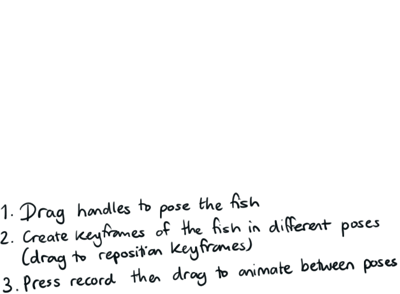 1. Drag handles to pose the fish
2. Create keyframes of the fish in different poses
(drag to reposition keyframes)
3. Press record then drag to animate between poses